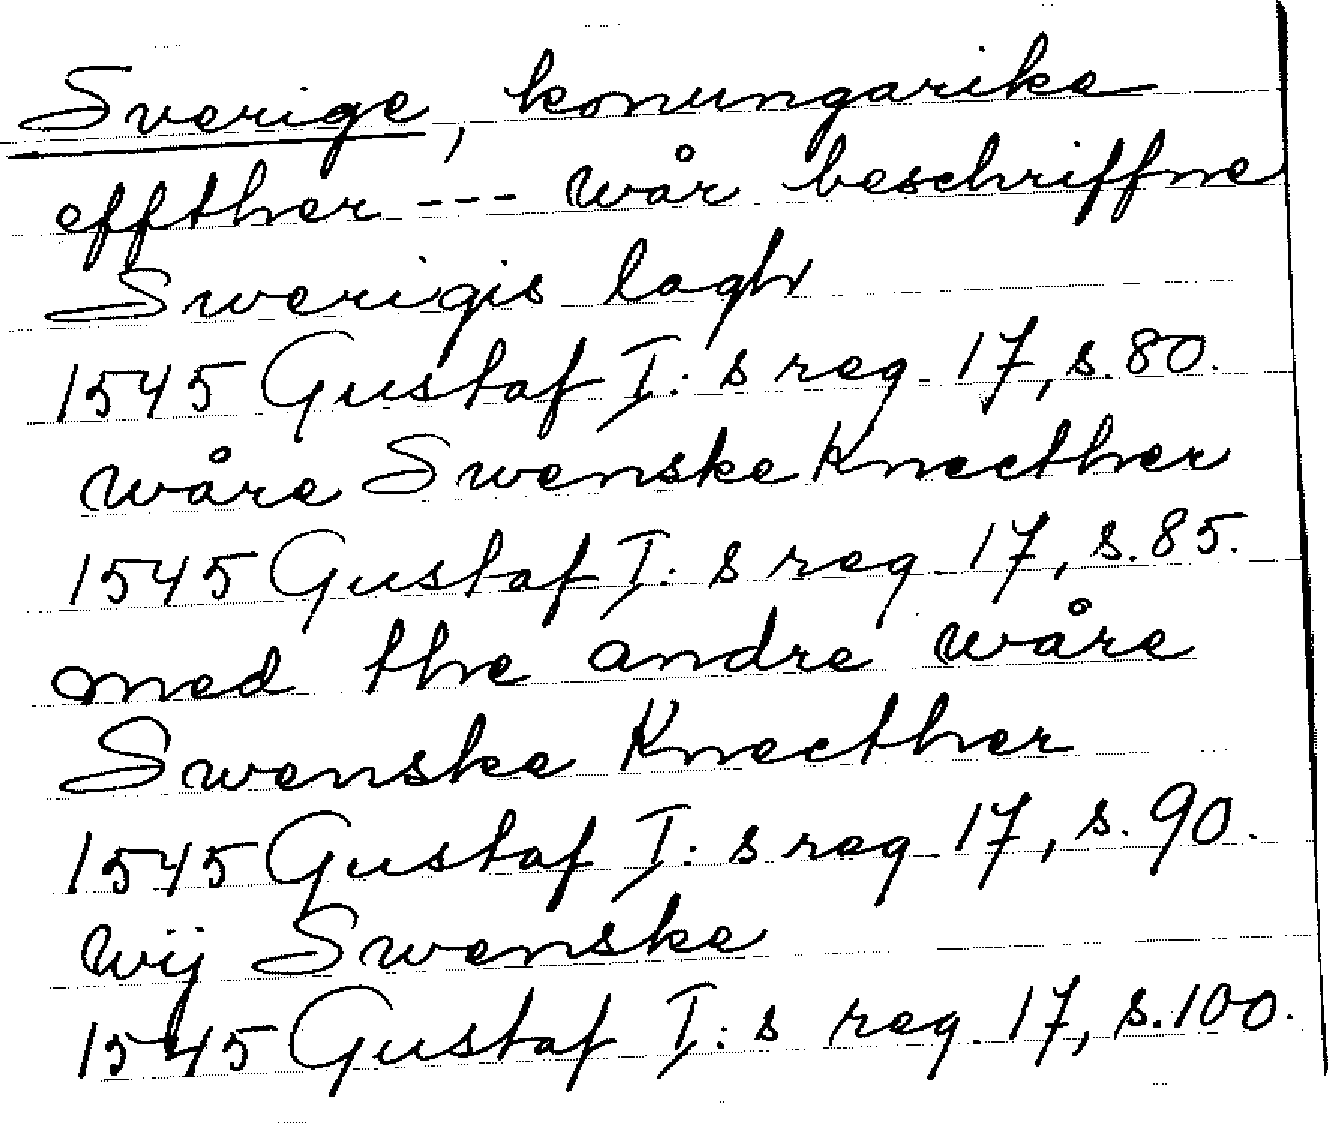 Sverige, konungarike
effther --- wår beschriffne
Swerigis lagh
1545 Gustaf I:s reg. 17, s. 80.
wåre Swenske Knecther
1545 Gustaf I:s reg. 17, s. 85.
med the andre wåre
Swenske Knecther
1545 Gustaf I:s reg. 17, s. 90.
wij Swenske
1545 Gustaf I:s reg. 17, s. 100.